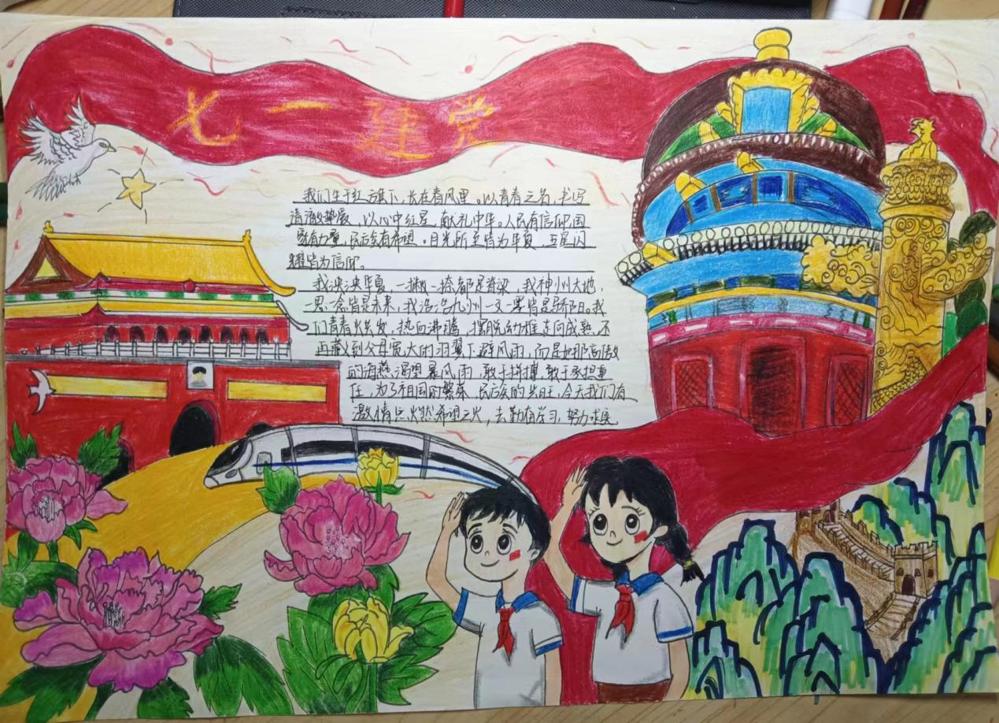 七一建党
我们生于红旗下，长在春风里。以青春之名，书写
清澈热爱，以心中红星，献礼中华。人民有信仰，国
家有力量，民族有希望，目光所至皆为华夏，五星闪
耀皆为信仰。
我泱泱华夏，一撇一捺都是脊梁，我神州大地
一思一念皆是未来，我浩浩九州一文一墨皆是骄阳。我
们青春火焕发，热血沸腾，摆脱幼稚走向成熟，不
再藏到父母宽大的羽翼下避风雨，而是如那高傲
的海燕渴望暴风雨，敢于拼搏，敢于承担重
任，为了祖国的繁荣，民族的兴旺，今天我们有
激情点火然希望之火，去勤奋学习，努力求是